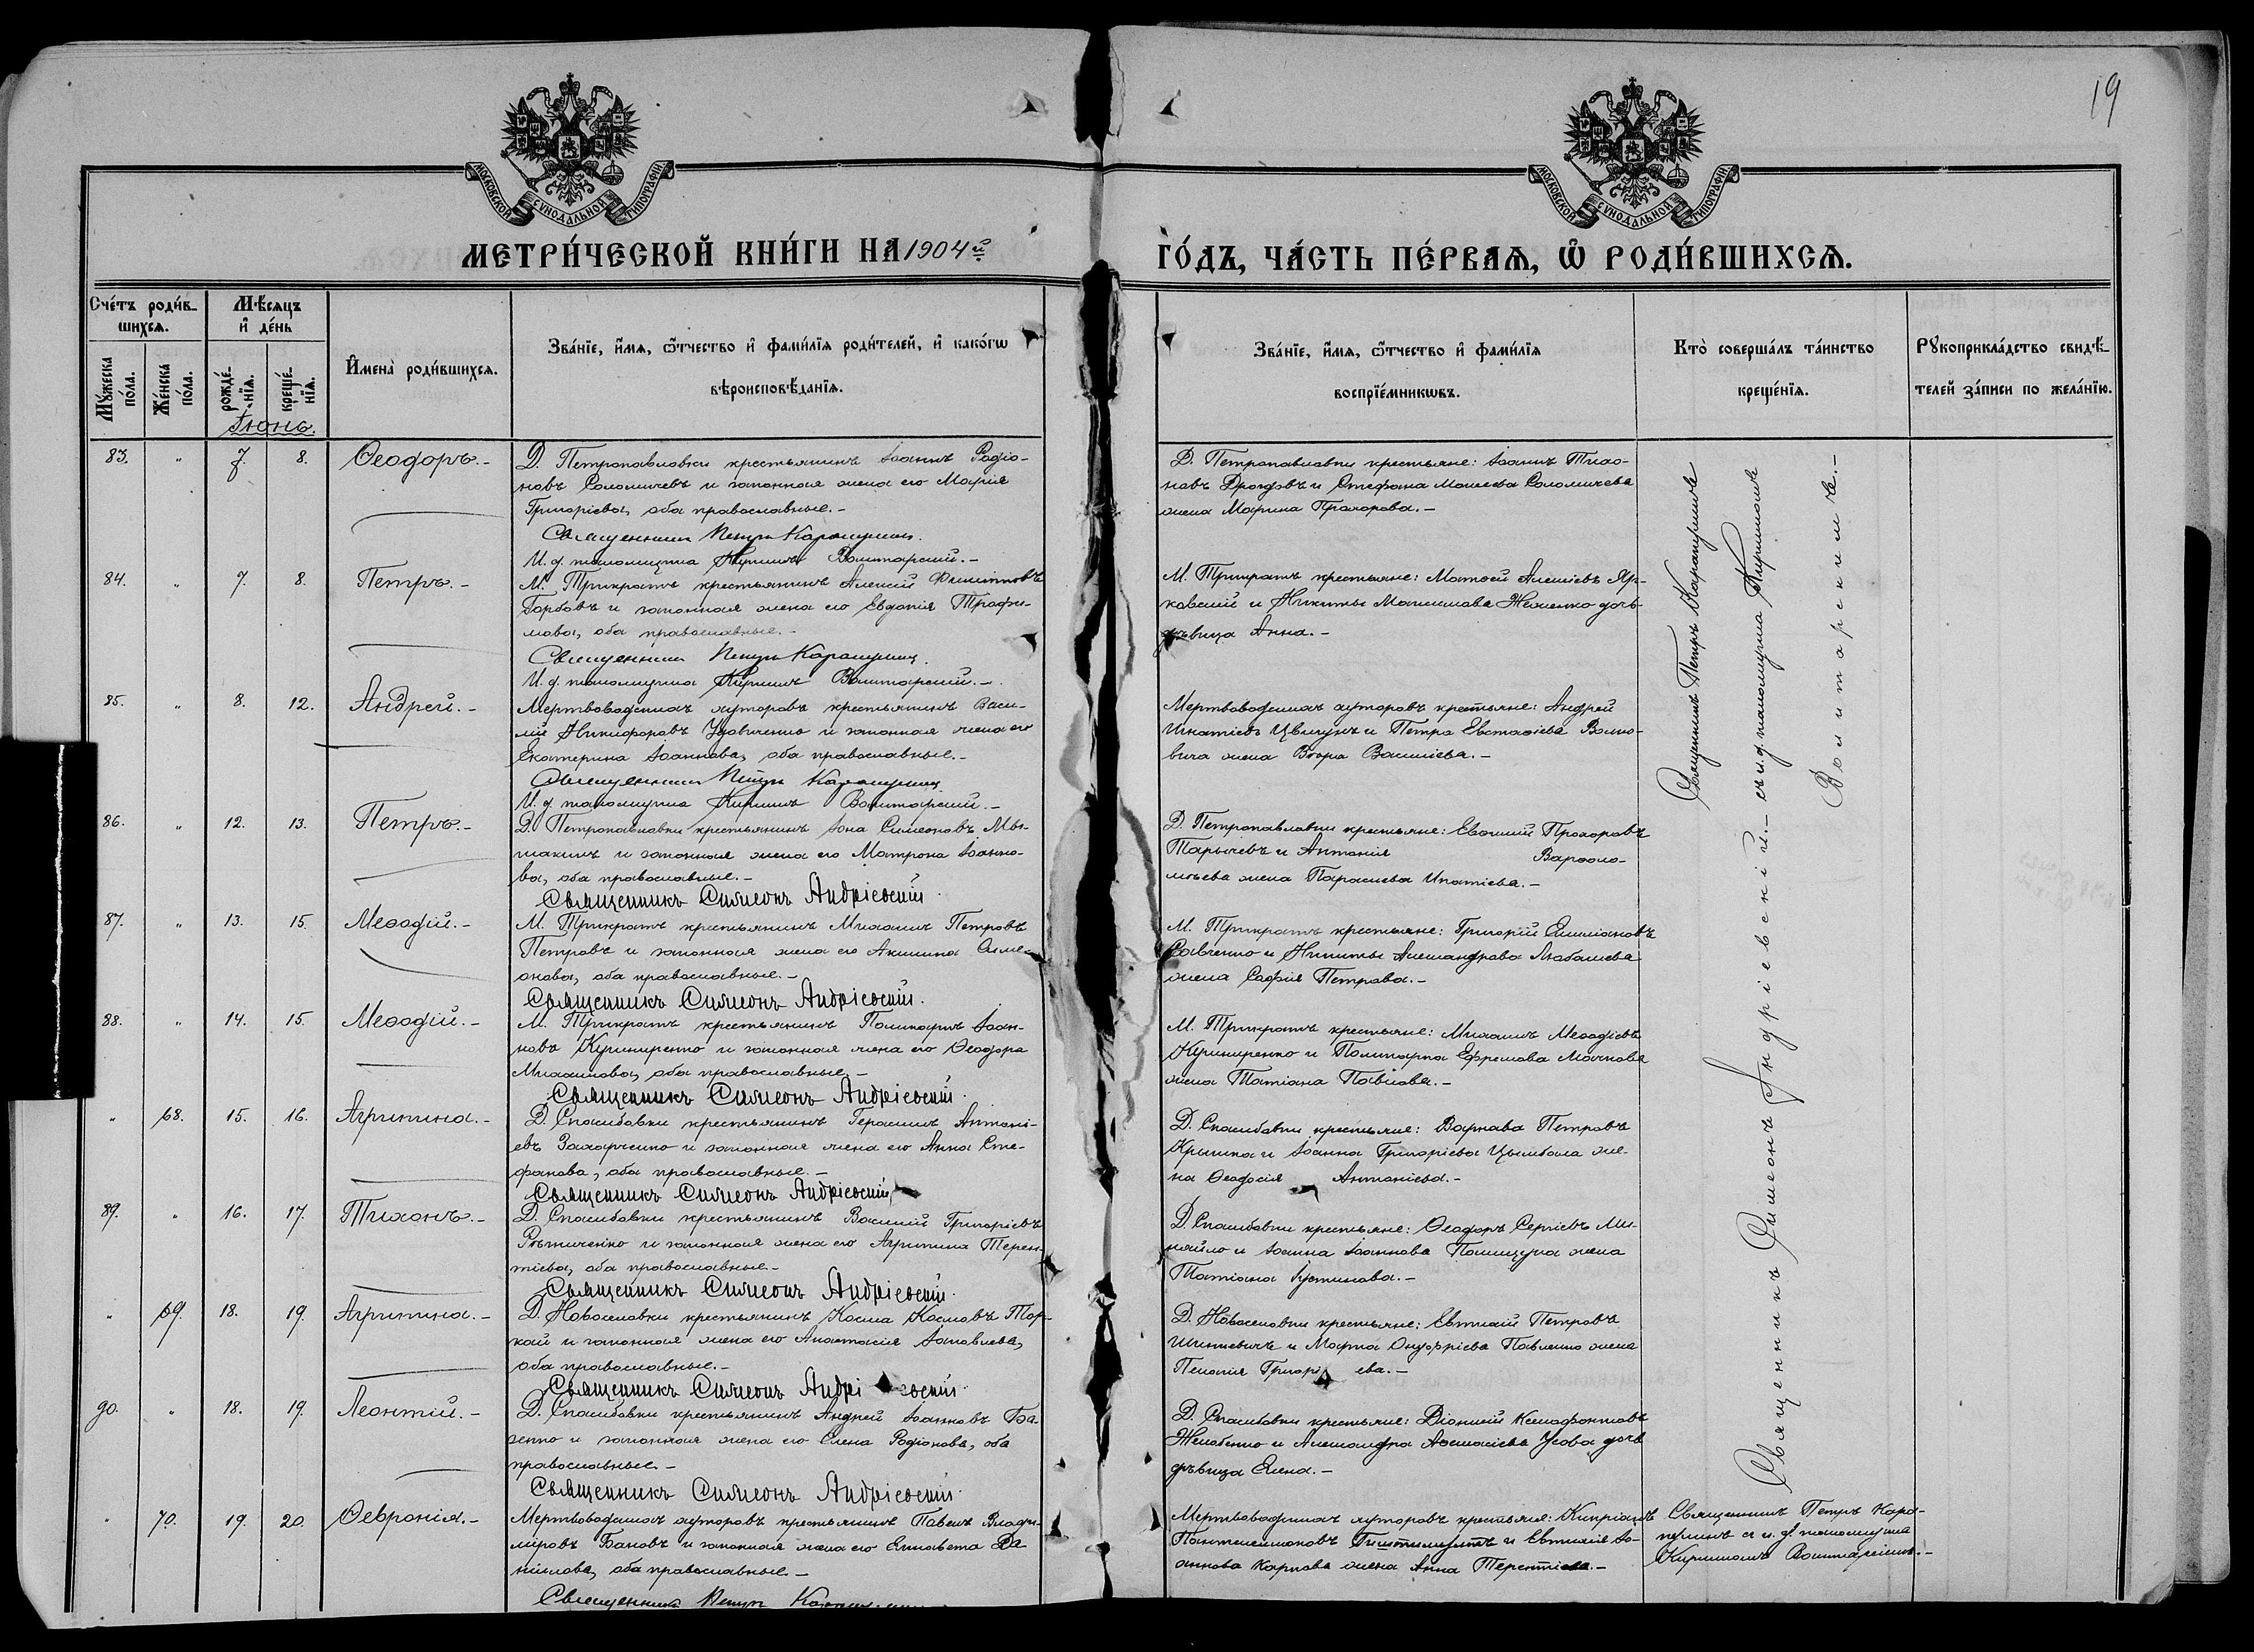 19
МОСКОВСКОЙ СѴНОДАЛЬНОЙ ТИПОГРАФІИ
МОСКОВСКОЙ СѴНОДАЛЬНОЙ ТИПОГРАФІИ
МЕТРИ́ЧЕСКОЙ КНИ́ГИ НА 1904й
ГО́ДЪ, ЧА́СТЬ ПЕ́РВАѦ, Ѡ҆ РОДИ́ВШИХСѦ.
Сче́тъ роди́в-
шихсѧ.
Мꙋ́жеска по́ла.
Же́нска по́ла.
Мѣ́сѧцъ
и҆ де́нь
рожде́-
нїѧ.
креще́-
нїѧ.
Іюнь.
И҆мена̀ роди́вшихсѧ.
Зва́нїе, и҆́мѧ, ѻ҆́тчество и҆ фами́лїѧ роди́телей, и҆ како́гѡ
вѣроисповѣ́данїѧ.
Зва́нїе, и҆́мѧ, ѻ҆́тчество и҆ фами́лїѧ
воспрїе́мникѡвъ.
Кто̀ соверша́лъ та́инство
креще́нїѧ.
Рꙋкоприкла́дство свидѣ́-
телей за́писи по жела́нїю.
83. " 7. 8. Ѳеодоръ.-
Д. Петропавловки крестьянинъ Іоаннъ Родіо-
новъ Соломичевъ и законная жена его Марія
Григоріева, оба православные.-
Священникъ Петръ
И. д. псаломщика Кириллъ
Д. Петропавловки крестьяне: Іоаннъ Тихо-
новъ Дроздовъ и Стефана Моисеева Соломичева
жена Марина Прохорова.-
84. " 7. 8. Петръ.-
М. Трикратъ крестьянинъ Алексій Филипповъ
Горбовъ и законная жена его Евдокія Трофи-
мова, оба православные.-
Священникъ Петръ
И. д. псаломщика Кириллъ
М. Трикратъ крестьяне: Матѳей Алексіевъ Яр-
ковскій и Никиты дочь
дѣвица Анна.-
85. " 8. 12. Андрей.-
Мертвоводскихъ хуторовъ крестьянинъ Васи-
лій Никифоровъ Удовиченко и законная жена его
Екатерина Іоаннова, оба православные.-
Священникъ Петръ
И. д. псаломщика Кириллъ
Мертвоводскихъ хуторовъ крестьяне: Андрей
Игнатіевъ Цвигунъ и Петра Евстафіева Волко-
вича жена Вѣра Василіева.-
86. " 12. 13. Петръ.-
Д. Петропавловки крестьянинъ Іона Симеоновъ Мы-
шакинъ и законная жена его Матрона Іоанно-
ва, оба православные.-
Священникъ Симеонъ Андріевскій
Д. Петропавловки крестьяне: Евѳимій Прохоровъ
Тарычевъ и Антонія Варѳоло-
меева жена Параскева Ипатіева.-
87. " 13. 15. Меѳодій.-
М. Трикратъ крестьянинъ Михаилъ Петровъ
Петровъ и законная жена его Акилина Симе-
онова, оба православные.-
Священникъ Симеонъ Андріевскій.
М. Трикратъ крестьяне: Григорій Емиліановъ
Савченко и Никиты Александрова Любашева
жена Софія Петрова.-
88. " 14. 15. Меѳодій.-
М. Трикратъ крестьянинъ Поликарпъ Іоан-
новъ Кушниренко и законная жена его Ѳеодора
Михаилова, оба православные.-
Священникъ Симеонъ Андріевскій.
М. Трикратъ крестьяне: Михаилъ Меѳодіевъ
Кушниренко и Поликарпа Ефремова Мачкова
жена Татіана Павлова.-
" 68. 15. 16. Агрипина.-
Д. Спасибовки крестьянинъ Герасимъ Антоні-
евъ Захарченко и законная жена его Анна Сте-
фанова, оба православные.-
Священникъ Симеонъ Андріевскій
Д. Спасибовки крестьяне: Варнава Петровъ
Крышка и Іоанна Григоріева Цымбала же-
на Ѳеодосія Антоніева.-
89. " 16. 17. Тихонъ.-
Д. Спасибовки крестьянинъ Василій Григоріевъ
Рѣпниченко и законная жена его Агрипина Терен-
тіева, оба православные.-
Священникъ Симеонъ Андріевскій.
Д. Спасибовки крестьяне: Ѳеодоръ Сергіевъ Ми-
хайло и Іоанна Іоаннова Полищука жена
Татіана Іустинова.-
" 69. 18. 19. Агрипина.-
Д. Новоселовки крестьянинъ Косма Космовъ Тор-
кай и законная жена его Анастасія Іаковлева,
оба православные.-
Священникъ Симеонъ Андріевскій.
Д. Новоселовки крестьяне: Евтихій Петровъ
Шинкевичъ и Марка Онуфріева Павленко жена
Пелагія Григоріева.-
90. " 18. 19. Леонтій.-
Д. Спасибовки крестьянинъ Андрей Іоанновъ Ба-
зенко и законная жена его Елена Родіонова, оба
православные.-
Священникъ Симеонъ Андріевскій.
Д. Спасибовки крестьяне: Діонисій Ксенофонтовъ
Желобенко и Александра Аѳанасіева Усова дочь
дѣвица Елена.-
" 70. 19. 20. Ѳевронія.-
Мертвоводскихъ хуторовъ крестьянинъ Павелъ Влади-
міровъ Бановъ и законная жена его Елисавета Да-
ніилова, оба православные.-
Священникъ Петръ
Мертвоводскихъ хуторовъ крестьяне: Кипріанъ
Пантелеимоновъ и Евтихія Іо-
аннова Карпова жена Анна Терентіева.-
Священникъ Петръ
съ и. д. псаломщика
Кирилломъ
Священникъ Симеонъ Андріевскій.-
Священникъ Петръ
съ и. д. псаломщика Кирилломъ